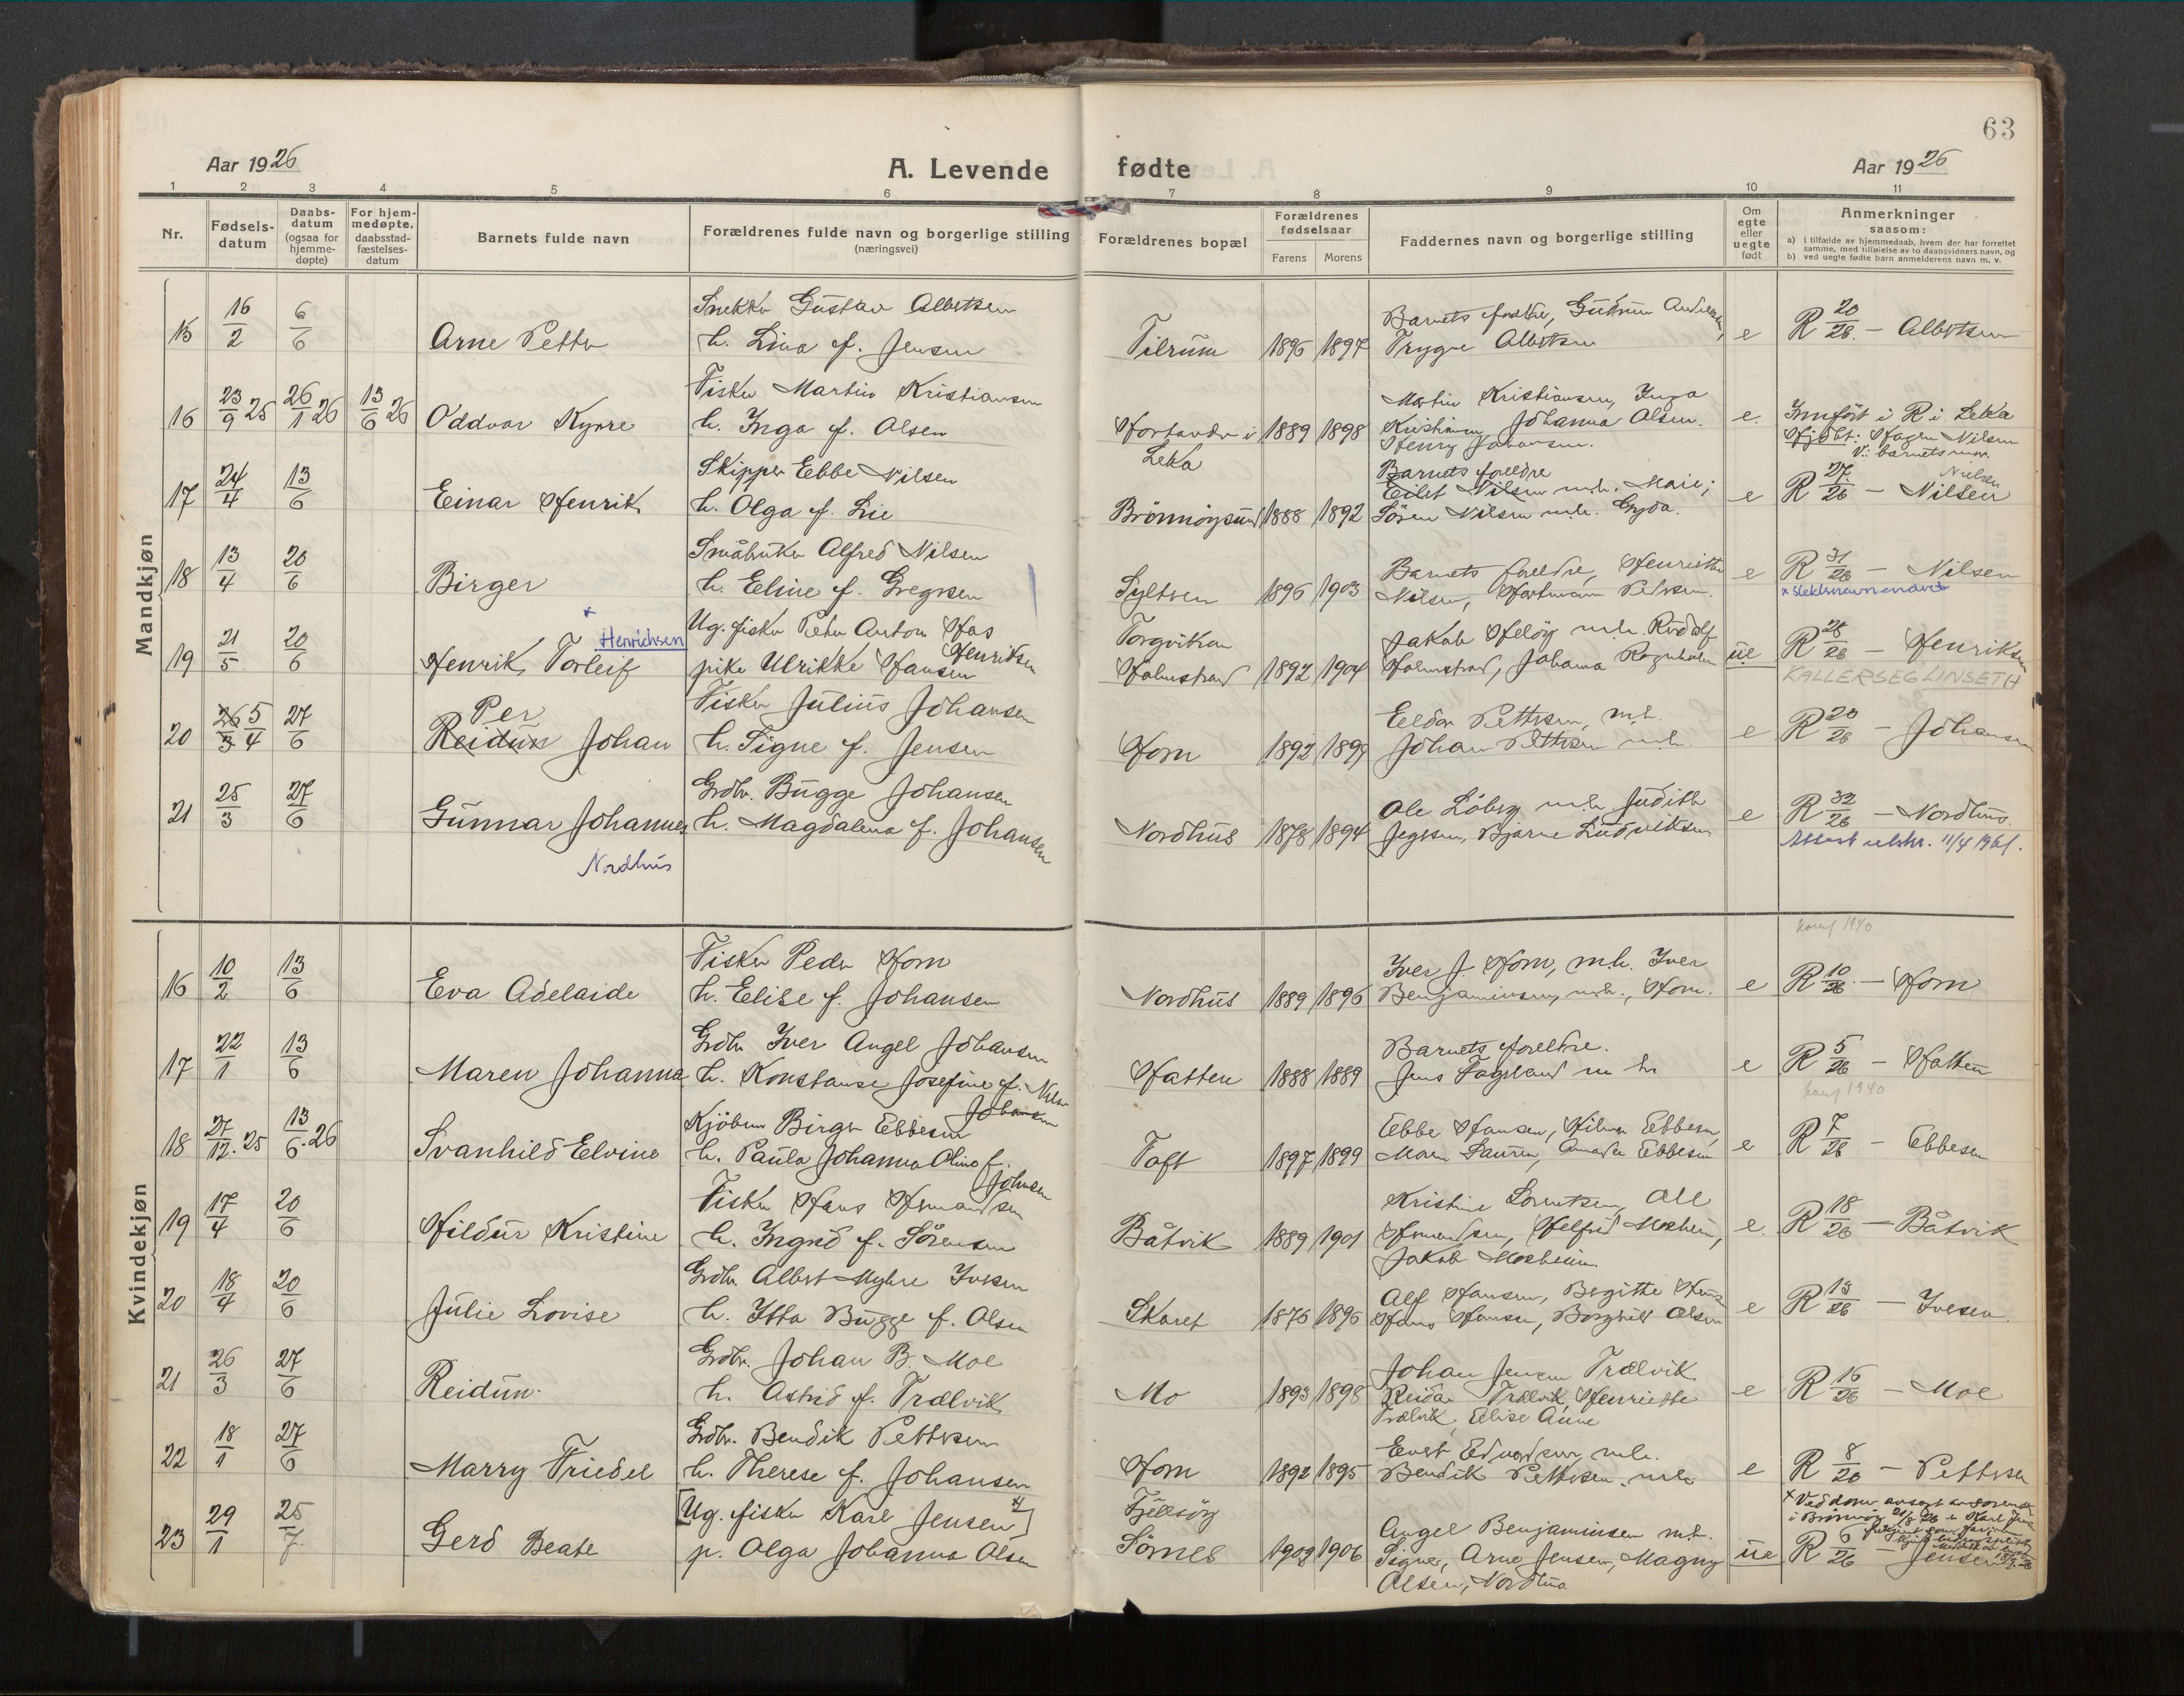 63
Aar 1926
A. Levende fødte
Aar 1926
1 2 3 4 5 6 7 8 9 10 11
Nr.
Fødsels-
datum
Daabs-
datum
(ogsaa for
hjemme-
døpte)
For hjem-
medøpte,
daabsstad-
fæstelses-
datum
Barnets fulde navn
Forældrenes fulde navn og borgerlige stilling
(næringsvei)
Forældrenes bopæl
Forældrenes
fødselsaar
Farens Morens
Faddernes navn og borgerlige stilling
Om
egte
eller
uegte
født
Anmerkninger
saasom:
a) i tilfælde av hjemmedaab, hvem der har forrettet
samme, med tilføielse av to daabsvidners navn, og
b) ved uegte fødte barn anmelderens navn m. v.
Mandkjøn
15 16/2 6/6 Arne Petter
Snekker Gustav Albertsen
h. Lina f. Jensen
Tilrum 1896 1897
Barnets foreldre, Gudrun Andersen,
Trygve Albertsen
e R 20/26 - Albertsen
16 23/9 25 26/1 26 13/6 26 Oddvar Kyrre
Fisker Martin Kristiansen
h. Inga f. Olsen
Hortandr i
Leka
1889 1898
Martin Kristiansen, Inga
Kristiansen, Johanna Olsen.
Henry Johansen.
e. Innført i R i Leka
Hjdbt: Hagen Nilsen
V: barnets mor.
17 24/4 13/6 Einar Henrik
Skipper Ebbe Nilsen
h. Olga f. Lie
Brønnøysund 1888 1892
Barnets foreldre
Eilet Nilsen m.h. Marie;
Sören Nilsen m.h. Gyda.
e R 27/26 - Nilsen
Nielsen
18 13/4 20/6 Birger
Småbruker Alfred Nilsen
h. Eline f. Gregersen
Sylteren 1896 1903
Barnets foreldre, Henriette
Nilsen, Hartmann Pedersen.
e R 31/26 - Nilsen
x slektsnavn endret
19 21/5 20/6 Henrik Torleif
x Henrichsen
Ug. fisker Peter Anton Has
Henriksen
pike Ulrikke Hansen
Torgvikran
Holmstrand 1892 1904
Jakob Heløy m.h. Rudolf
Holmstrand, Johanna Ragnhilm
ue R 28/26 - Henriksen
KALLER SEG LINSETH
20 26/3 5/4 27/6 Per
Reidun Johan
Fisker Julius Johansen
h. Signe f. Jensen
Horn 1892 1899
Eldor Pettersen, m.h.
Johan Pettersen m.h.
e R 20/26 - Johansen
21 25/3 27/6 Gunnar Johannes
Nordhus
Grdbr. Bugge Johansen
h. Magdalena f. Johansen
Nordhus 1878 1894
Ole Löberg m.h. Judith
Jegersen, Bjarne Ludviksen
e R 32/26 - Nordhus.
Attest utskr. 11/4 1961.
Kvindekjøn
konf 1940
16 10/2 13/6 Eva Adelaide
Fisker Peder Horn
h. Elise f. Johansen
Nordhus 1889 1896
Iver J. Horn, m.h. Iver
Benjaminsen, m.h., Horn.
e R 10/26 - Horn
17 22/1 13/6 Maren Johanna
Grdbr Iver Angel Johansen
h. Konstanse Josefine f. Nilsen
Johansen
Hatten 1888 1889
Barnets foreldre.
Jens Fagerland m h
e R 5/26 - Hatten
konf 1940
18 27/12.25 13/6.26 Svanhild Elvine
Kjöbm Birger Ebbesen
h. Paula Johanna Oline f.
Johnsen
Toft 1897 1899
Ebbe Hansen, Hilma Ebbesen,
Maren Lauren, Amada Ebbesen
e R 7/26 - Ebbesen
19 17/4 20/6 Hildur Kristine
Fisker Hans Hermandsen
h. Ingrid f. Sörensen
Båtvik 1889 1901
Kristine Lorentsen, Ole
Hermandsen, Helfrid Moxheim,
Jakob Moxheim
e. R 18/26 - Båtvik
20 18/4 20/6 Julie Lovise
Grdbr Albert Myhre Iversen
h. Itta Bugge f. Olsen
Skaret 1876 1896
Alf Hansen, Bergitte
Hans Hansen, Borghild Olsen
e R 13/26 - Iversen.
21 26/3 27/6 Reidun.
Grdbr. Johan B. Moe
h. Astrid f. Trælvik
Mo 1893 1898
Johan Jensen Trælvik
Reidar Trælvik, Henriette
Trælvik, Elise Anne
e R 16/26 - Moe
22 18/1 27/6 Marry Friedel
Grdbr. Bendik Pettersen
h. Therese f. Johansen
Horn 1892 1895
Evert Edvardsen, m.h.
Bendik Pettersen m.h.
e R 8/26 - Pettersen
23 29/1 25/7. Gerd Beate
[Ug. fisker Karl Jensen x)]
p. Olga Johanna Olsen
Fjellsöy
Sömnes 1902 1906
Angel Benjaminsen m.h.
Signe, Arne Jensen, Magny
Olsen, Nordhus
ue R 6/26 - Jensen
x Ved dom avsagt av sorensk
i Brønnöy 21/8 26 er Karl Jen